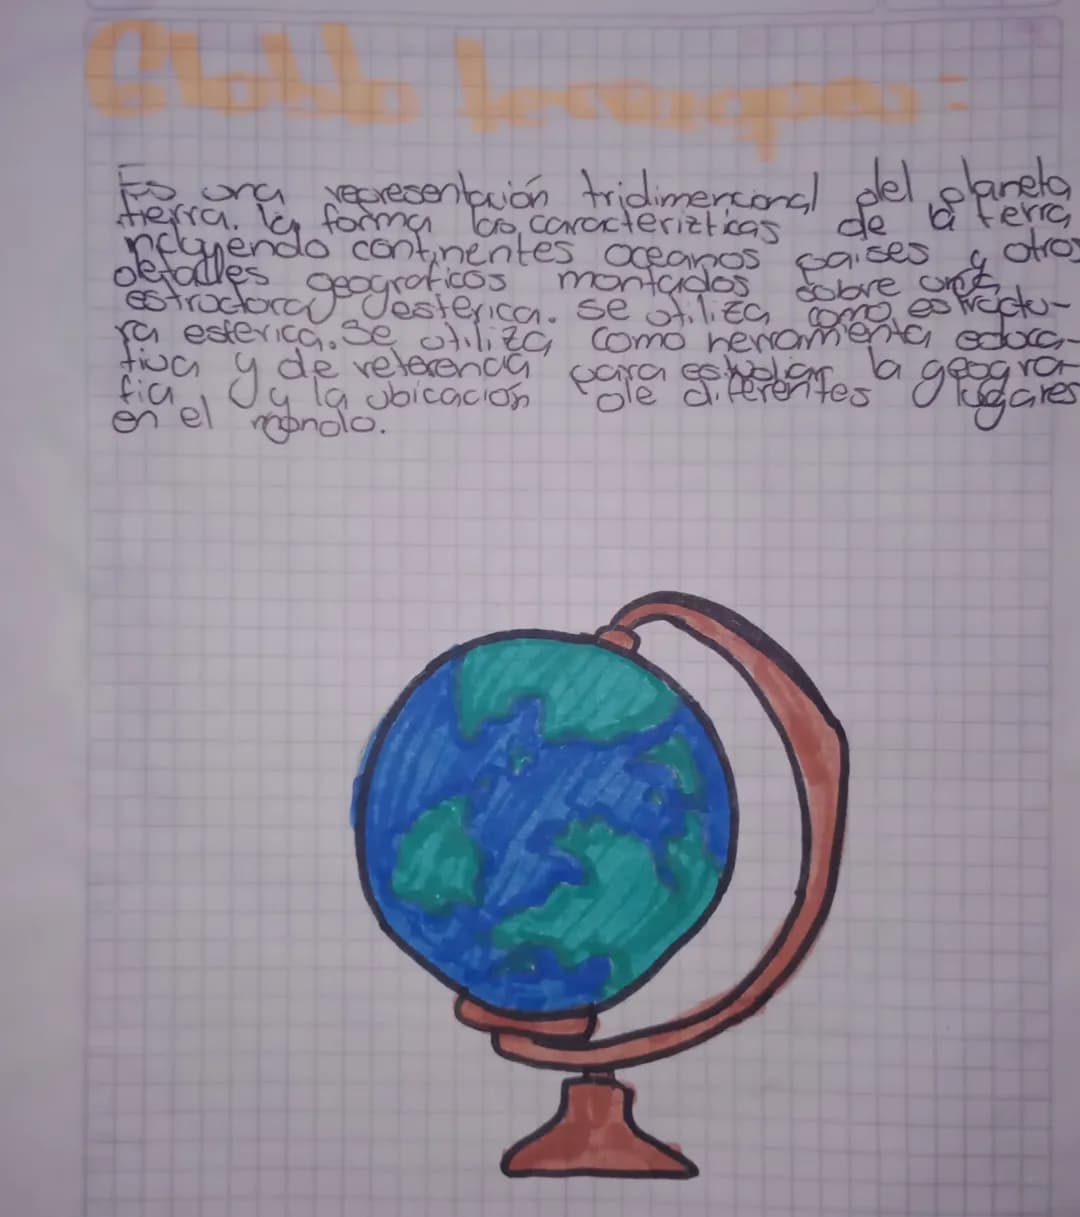 Globo terraqueo:
Es una representación tridimencional del planeta
tierra. la forma las caracterizticas de la tierra
incluyendo continentes oceanos paises y otros
detalles geograficos montados sobre una
estructura esferica. se utiliza como estructu-
ra esferica. Se utiliza como herramienta educa-
tiva y de referencia para estudiar la geogra-
fia y la ubicación de diferentes lugares
en el mundo.